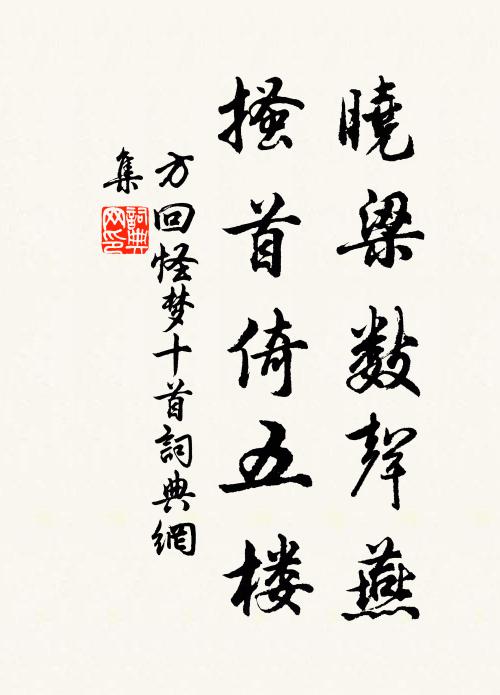 曉梁數聲燕
搔首倚五楼
方回怪梦十首詞典網
集
詞典网印